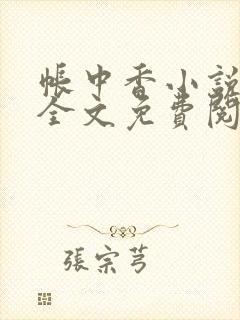 帳中香小說
全文免費閱
張宗芎